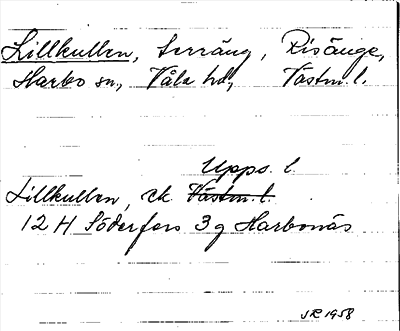 Lillkullen, terräng, Risänge,
Harbo sn, Våla hd, Västm. l.
Upps. l.
Lillkullen, ek Västm. l.
12 H Söderfors 3 g Harbonäs
JR 1958